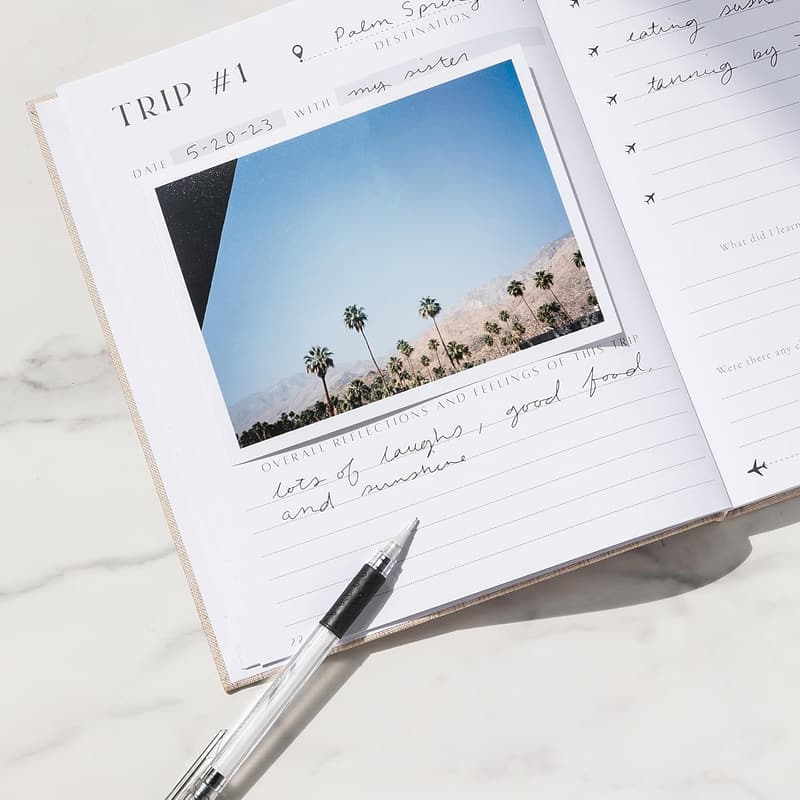 Palm Springs
DESTINATION
TRIP #1
DATE 5-20-23 WITH my sister
OVERALL REFLECTIONS AND FEELINGS OF THIS TRIP
lots of laughs, good food,
and sunshine
22
eating sushi
tanning by
What did I learn
Were there any